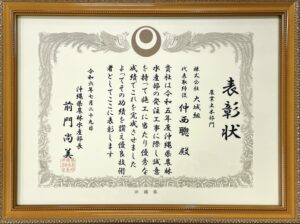 表彰状
農業土木部門
株式会社 大城組
代表取締役 仲西聰 殿
貴社は令和五年度沖縄県農林
水産部の発注工事に際し誠意
を持って施工に当たり優秀な
成績でこれを完成させました
よってその功績を讃え優良技術
者としてここに表彰します
令和六年七月二十九日
沖縄県農林水産部長
前門尚美
沖縄県